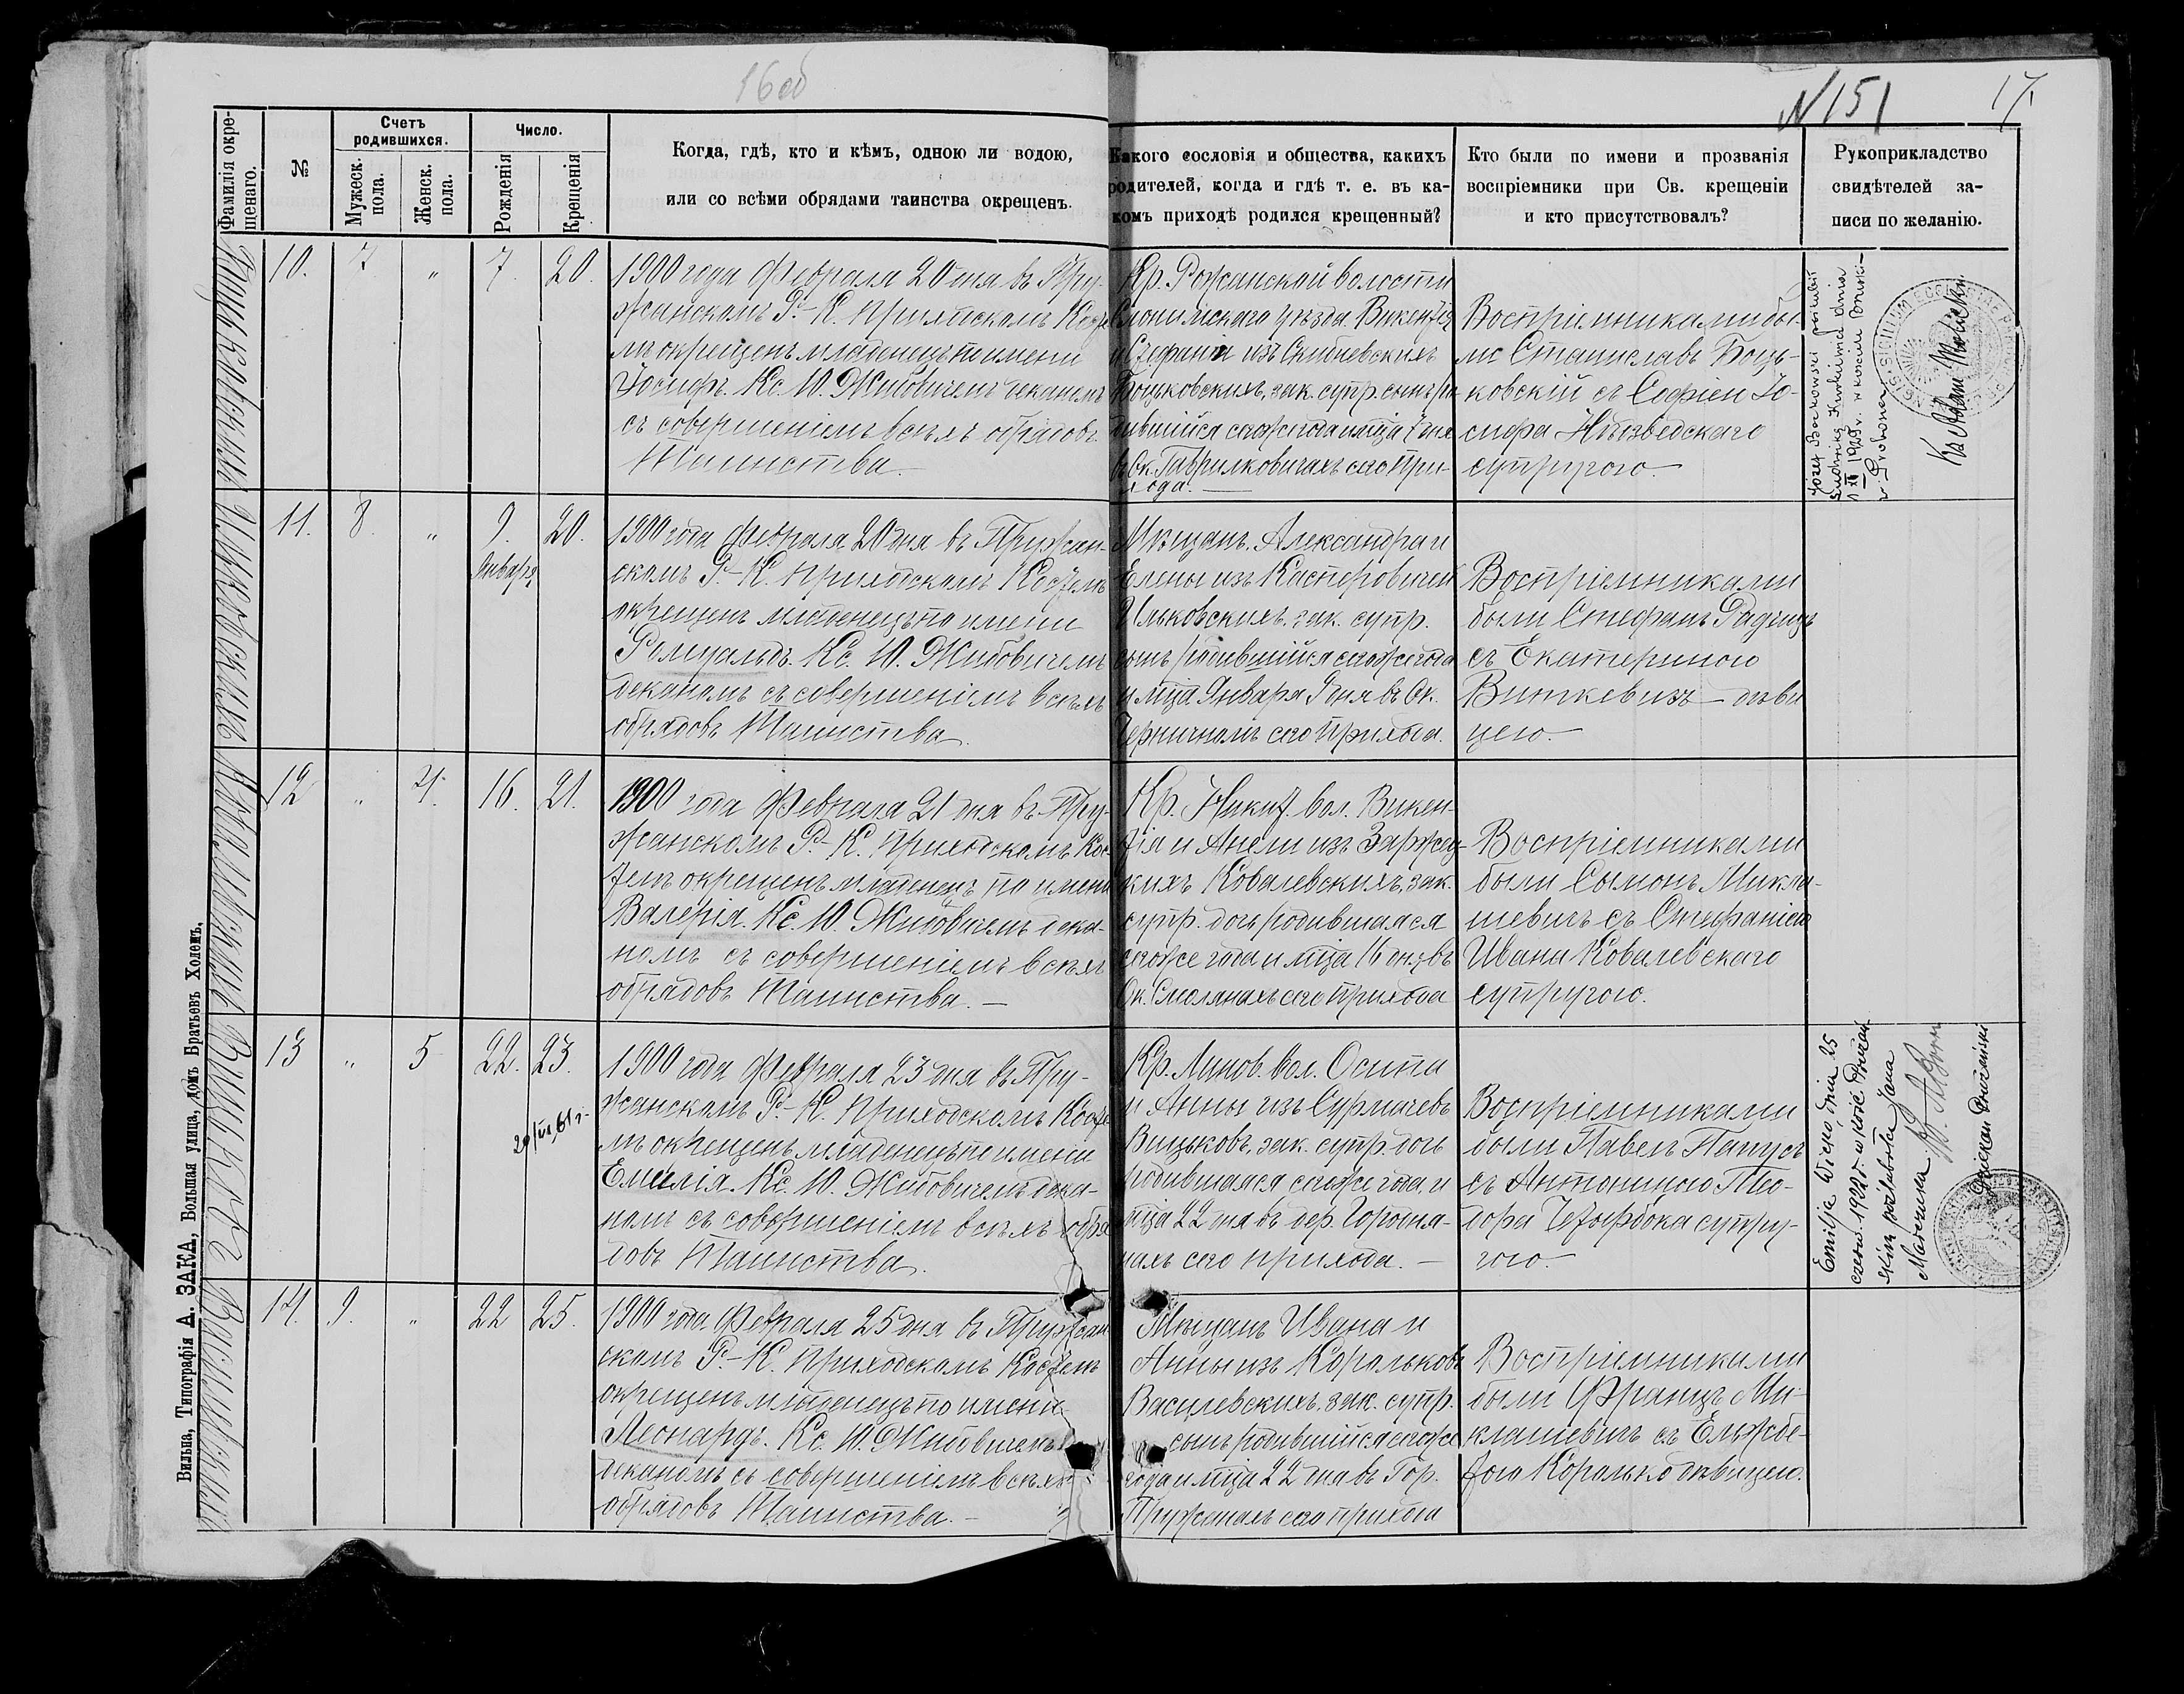 16об
N 151
17.
Фамилія окре-
щенаго.
№
Счетъ
родившихся.
Мужеск.
пола.
Женск.
пола.
Число.
Рожденія
Крещенія
Когда, гдѣ, кто и кѣмъ, одною ли водою,
или со всѣми обрядами таинства окрещенъ.
Какого сословія и общества, какихъ
родителей, когда и гдѣ т. е. въ ка-
комъ приходѣ родился крещенный?
Кто были по имени и прозванія
воспріемники при Св. крещеніи
и кто присутствовалъ?
Рукоприкладство
свидѣтелей за-
писи по желанію.
10.
7
"
7.
20.
1900 года Февраля 20 дня въ Пру-
жанскомъ Р.-К. Приходскомъ Косте-
лѣ окрещенъ младенецъ по имени
Іосифъ. Кс. Ю. Жит
овичемъ деканомъ
съ совершеніемъ всѣхъ обрядовъ
Таинства.
Кр. Рожанской волости
Слонимскаго уѣзда Викентія
и Стефаніи изъ
Боцьковскихъ, зак. супр. сынъ ро-
дившійся сегоже года и мѣсяца 7 дня
въ Ок. Гаврилковичахъ сего При-
хода.
Воспріемниками бы-
ли Станиславъ Боць-
ковскій съ Софіею Іо-
сифа Нѣзведскаго
супругою.
Józef Boćkowski poślubił
Ludwikę dnia
1 XI 1925 r. w kościele
Ks Adam
Ильковскихъ
11.
8.
"
9.
Января
20.
1900 года Февраля 20 дня въ Пружан-
скомъ Р.-К. Приходскомъ Костелѣ
окрещенъ младенецъ по имени
Ромуальдъ. Кс. Ю. Житовичемъ
деканомъ съ совершеніемъ всѣхъ
обрядовъ Таинства.
Мѣщанъ. Александра и
Елены изъ Касперовичей
Ильковскихъ. зак. супр.
сынъ родившійся сегоже года
и мѣсяца Января 9 дня въ Ок.
Черничномъ сего Прихода.
Воспріемниками
были Стефанъ
съ Екатериною
Виткевичъ — дѣви-
цею.
Ковалевскихъ
12
"
4.
16.
21.
1900 года Февраля 21 дня въ Пру-
жанскомъ Р.-К. Приходскомъ Кос-
телѣ окрещенъ младенецъ по имени
Валерія. Кс. Ю. Житовичемъ дека-
номъ съ совершеніемъ всѣхъ
обрядовъ Таинства. —
Кр. вол. Викен-
тія и Анели изъ Заржец-
кихъ Ковалевскихъ, зак.
супр. дочь родившаяся
сегоже года и мѣсяца 16 дня въ
Ок. Смолянахъ сего Прихода
Воспріемниками
были Сымонъ Микла-
шевичъ съ Стефаніею
Ивана Ковалевскаго
супругою.
13
"
5
22.
23.
1900 года Февраля 23 дня въ Пру-
жанскомъ Р.-К. Приходскомъ Косте-
лѣ окрещенъ младенецъ по имени
Емилія. Кс. Ю. Житовичемъ дека-
номъ съ совершеніемъ всѣхъ обря-
довъ Таинства.
Кр. Линов. вол. Осипа
и Анны изъ Сурмачевъ
Вицьковъ, зак. супр. дочь
родившаяся сегоже года, и
мѣсяца 22 дня въ дер. Городня-
нахъ сего прихода. —
Воспріемниками
были Павелъ Папусь
съ Антониною Тео-
дора Четырбока супру-
гою.
Emilja Wićko dnia 25
czerw. 1922 r. w kośc. Prużań-
skim poślubiła Jana
Marczuka.
Dziekan Prużański
14.
9.
"
22
25.
1900 года. Февраля 25 дня въ Пружан-
скомъ Р.-К. Приходскомъ Костелѣ
окрещенъ младенецъ по имени
Леонардъ. Кс. Ю. Житовичемъ
деканомъ съ совершеніемъ всѣхъ
обрядовъ Таинства. —
Мѣщанъ Ивана и
Анны изъ Коральковъ
Василевскихъ. зак. супр.
сынъ родившійся сегоже
года и мѣсяца 22 дня въ Гор.
Пружанахъ сего прихода
Воспріемниками
были Францъ Ми-
клашевичъ съ Ельжбе-
тою Коралько дѣвицею.
Вильна, Типографія А. ЗАКА, Большая улица, домъ Братьевъ Холемъ.